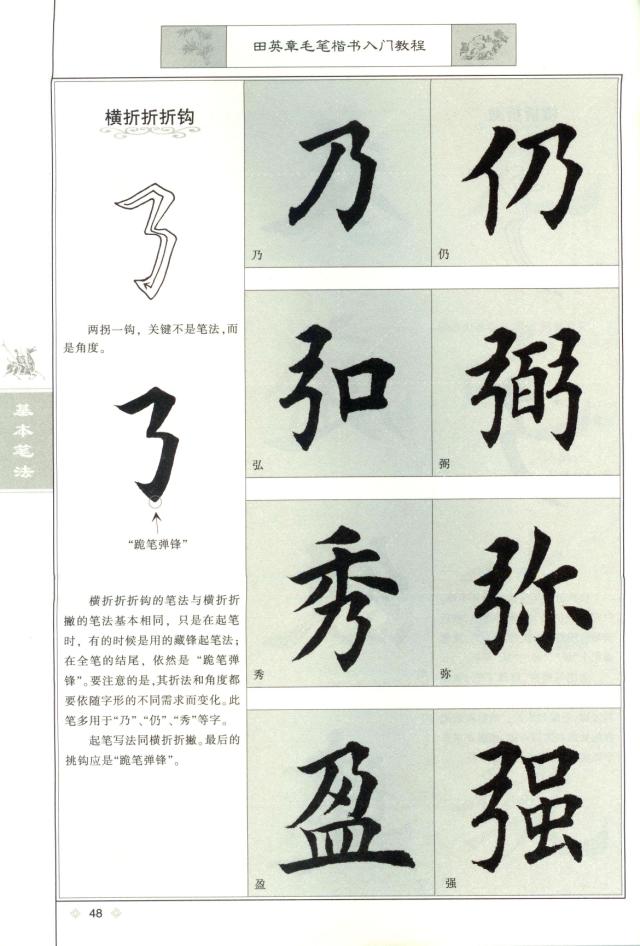 田英章毛笔楷书入门教程
横折折折钩
两拐一钩，关键不是笔法,而
是角度。
“跪笔弹锋”
横折折折钩的笔法与横折折
撇的笔法基本相同，只是在起笔
时，有的时候是用的藏锋起笔法；
在全笔的结尾，依然是“跪笔弹
锋”。要注意的是,其折法和角度都
要依随字形的不同需求而变化。此
笔多用于“乃”、“仍”、“秀”等字。
起笔写法同横折折撇。最后的
挑钩应是“跪笔弹锋”。
基本笔法
乃
仍
乃
仍
弘
弼
弘
弼
秀
弥
秀
弥
盈
强
盈
强
48